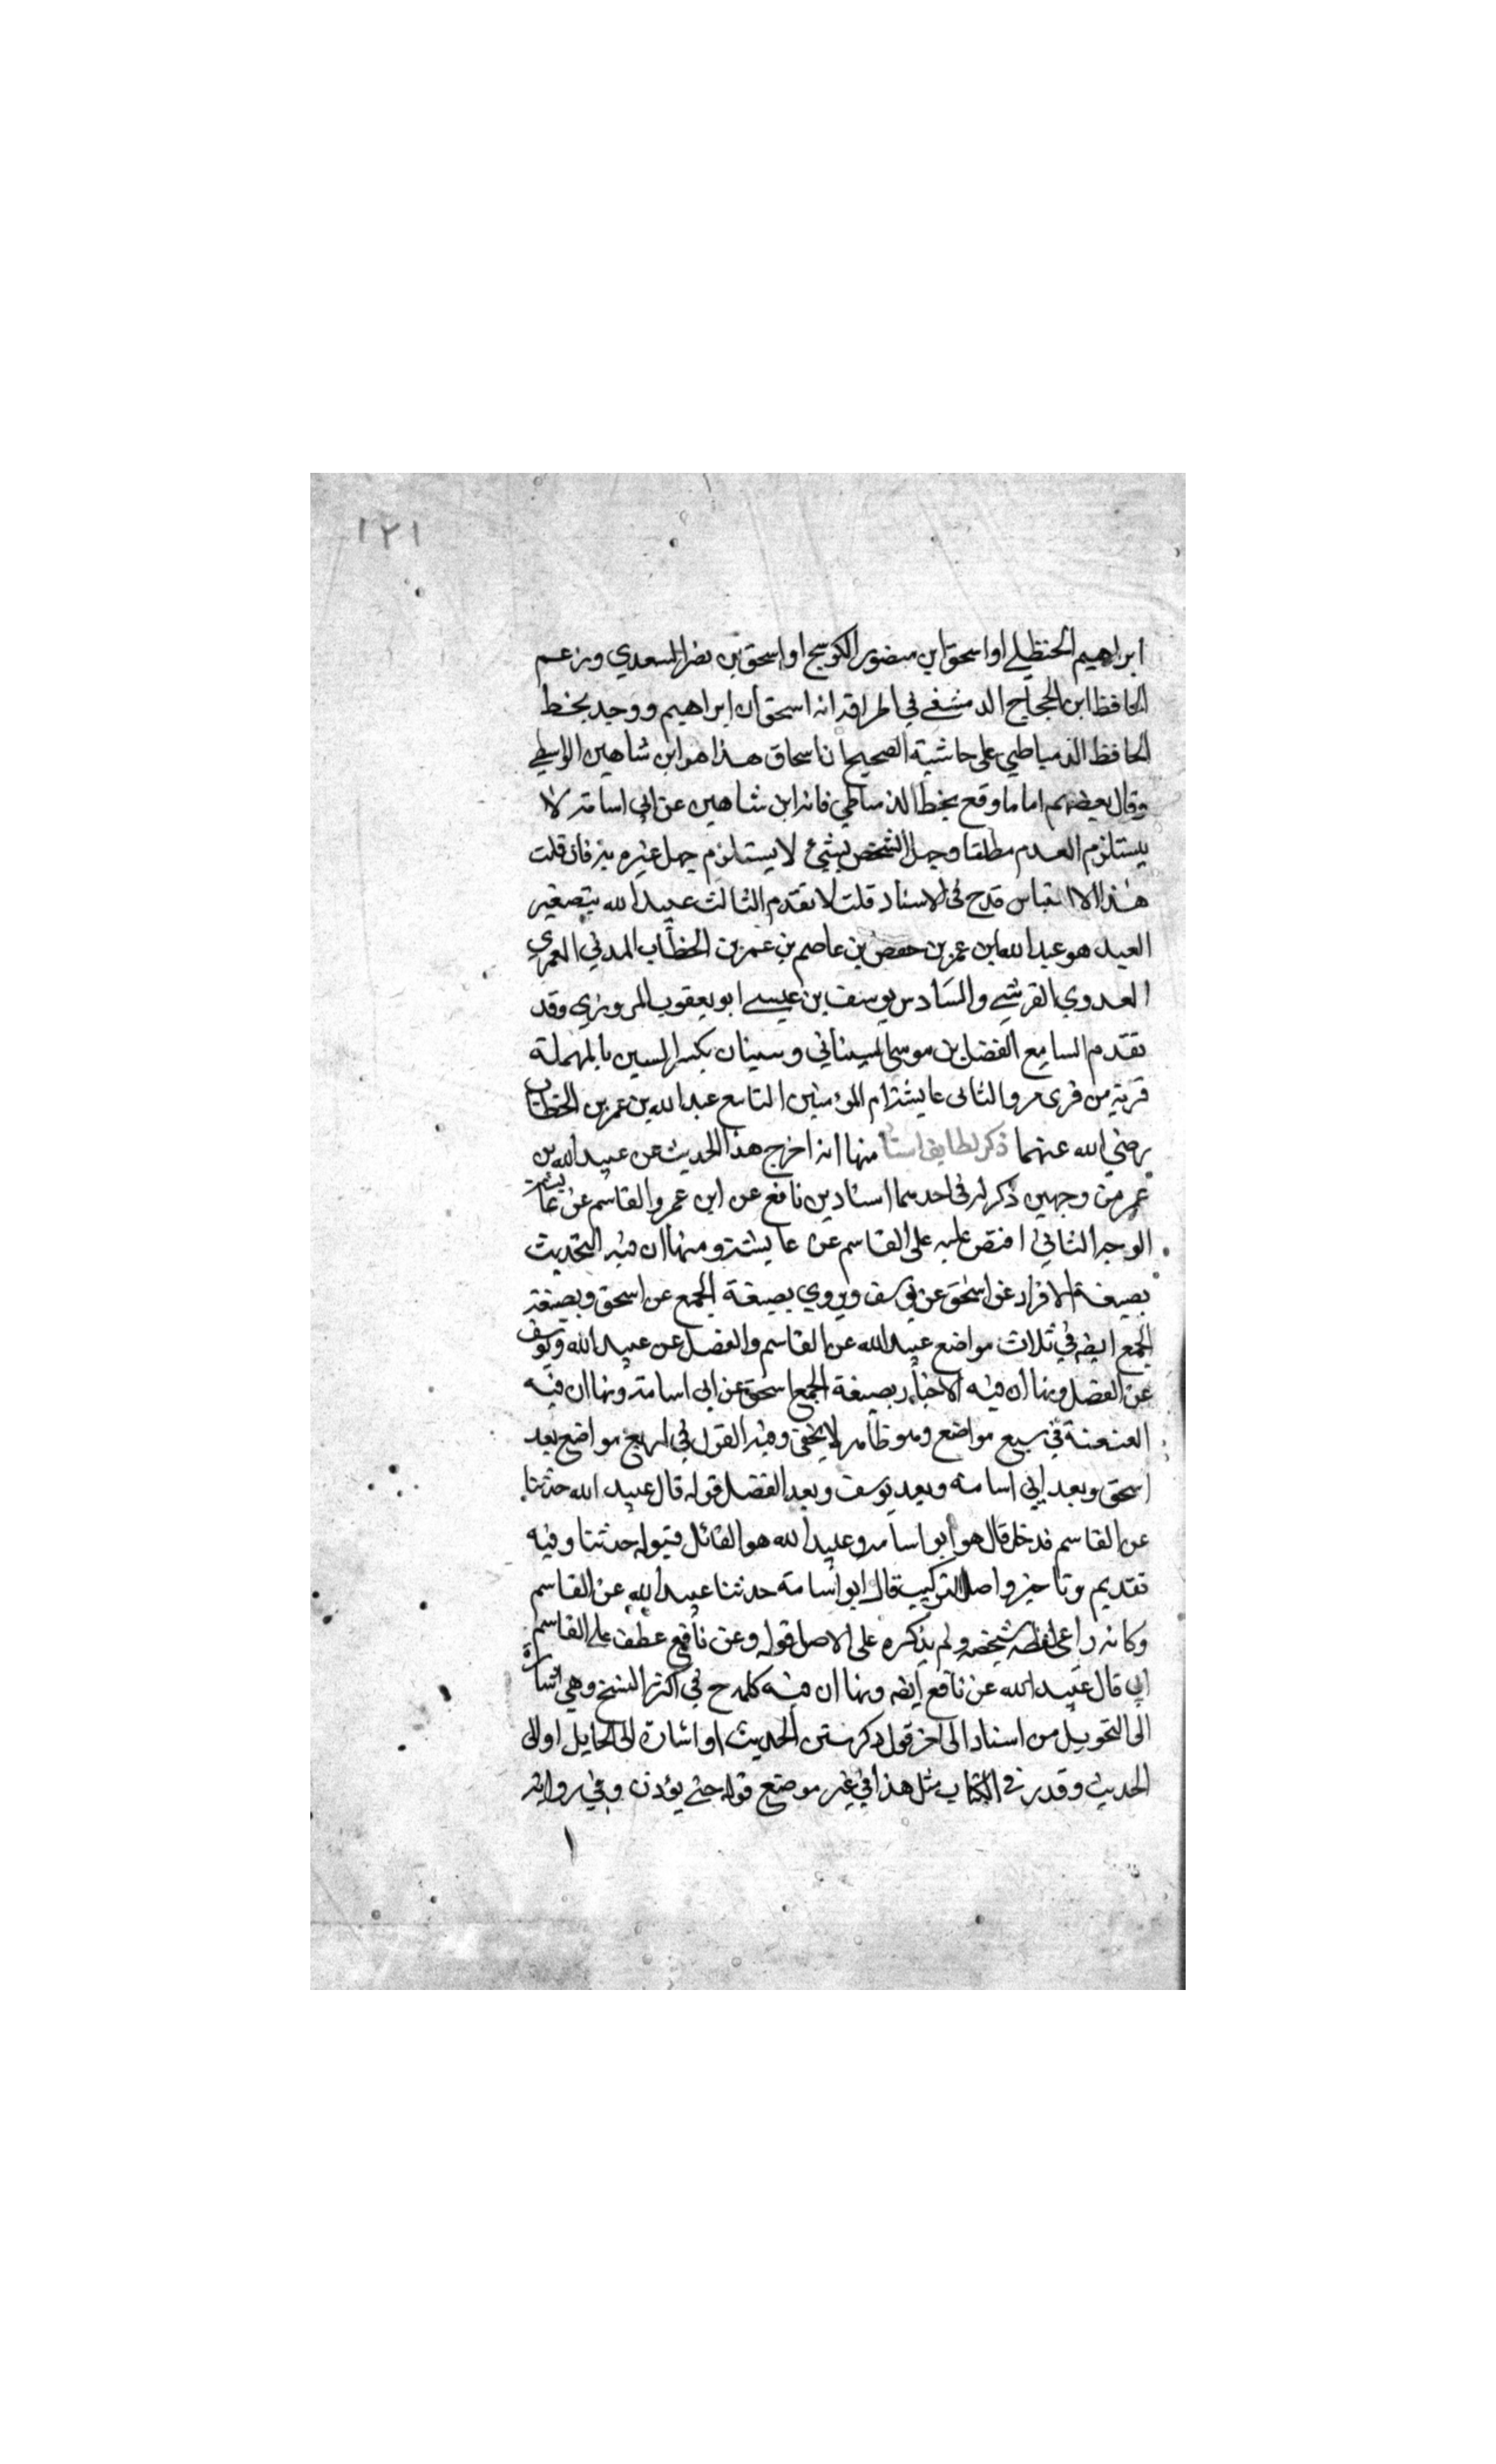 ١٢١
ابراهيم الحنظلي او اسحق ابن منصور الكوسج او اسحق بن نصر السعدي وزعم
الحافظ ابن الحجاج الدمشقي في اطرافه انه اسحق ان ابراهيم ووجد بخط
الحافظ الدمياطي على حاشية الصحيح ان اسحاق هذا هو ابن شاهين الواسطي
وقال بعضهم اما ما وقع بخط الدمياطي فانه ابن شاهين عن ابي اسامة لا
يستلزم العدم مطلقا وجهل الشخص بشيء لا يستلزم جهل غيره به فان قلت
هذا الالتباس قدح في الاسناد قلت لا تقدم الثالث عبيد الله بتصغير
العبد هو عبد الله ابن عمر بن حفص بن عاصم بن عمر بن الخطاب المدني العمري
العدوي القرشي والسادس يوسف بن عيسى ابو يعقوب المروزي وقد
تقدم السابع الفضل بن موسى السيناني وسينان بكسر السين بالمهملة
قرية من قرى مرو الثاني عايشة ام المؤمنين التاسع عبد الله بن عمر بن الخطاب
رضي الله عنهما ذكر لطايف اسنا منها انه اخرج هذا الحديث عن عبيد الله بن
عمر من وجهين ذكر له في احدهما اسنادين نافع عن ابن عمر والقاسم عن عايشة
الوجه الثاني اقتصر عليه على القاسم عن عايشة ومنها ان فيه التحديث
بصيغة الافراد عن اسحق عن يوسف ويروي بصيغة الجمع عن اسحق وبصيغة
الجمع ايضه في ثلاث مواضع عبيد الله عن القاسم والفضل عن عبيد الله ويوسف
عن الفضل ومنها ان فيه الاخبار بصيغة الجمع اسحق عن ابي اسامة ومنها ان فيه
العنعنة في سبع مواضع وهو ظاهر لا يخفى وفيه القول في اربع مواضع بعد
اسحق وبعد ابي اسامة وبعد يوسف وبعد الفضل قوله قال عبيد الله حدثنا
عن القاسم فدخل قال هو ابو اسامة وعبيد الله هو القائل فيقوله حدثنا وفيه
تقديم وتاخير واصل التركيب قال ابو اسامة حدثنا عبيد الله عن القاسم
وكانه راعى لفظ شيخه ولم يذكره على الاصل قوله وعن نافع عطف على القاسم
اي قال عبيد الله عن نافع ايضه ومنها ان فيه كلمة ح في اكثر النسخ وهي اشارة
الى التحويل من اسناد الى اخر قول ذكر متن الحديث او اشارة الى الحايل او الى
الحديث وقد في الكتاب مثل هذا في غير موضع قوله حتى يؤذن وفي رواية